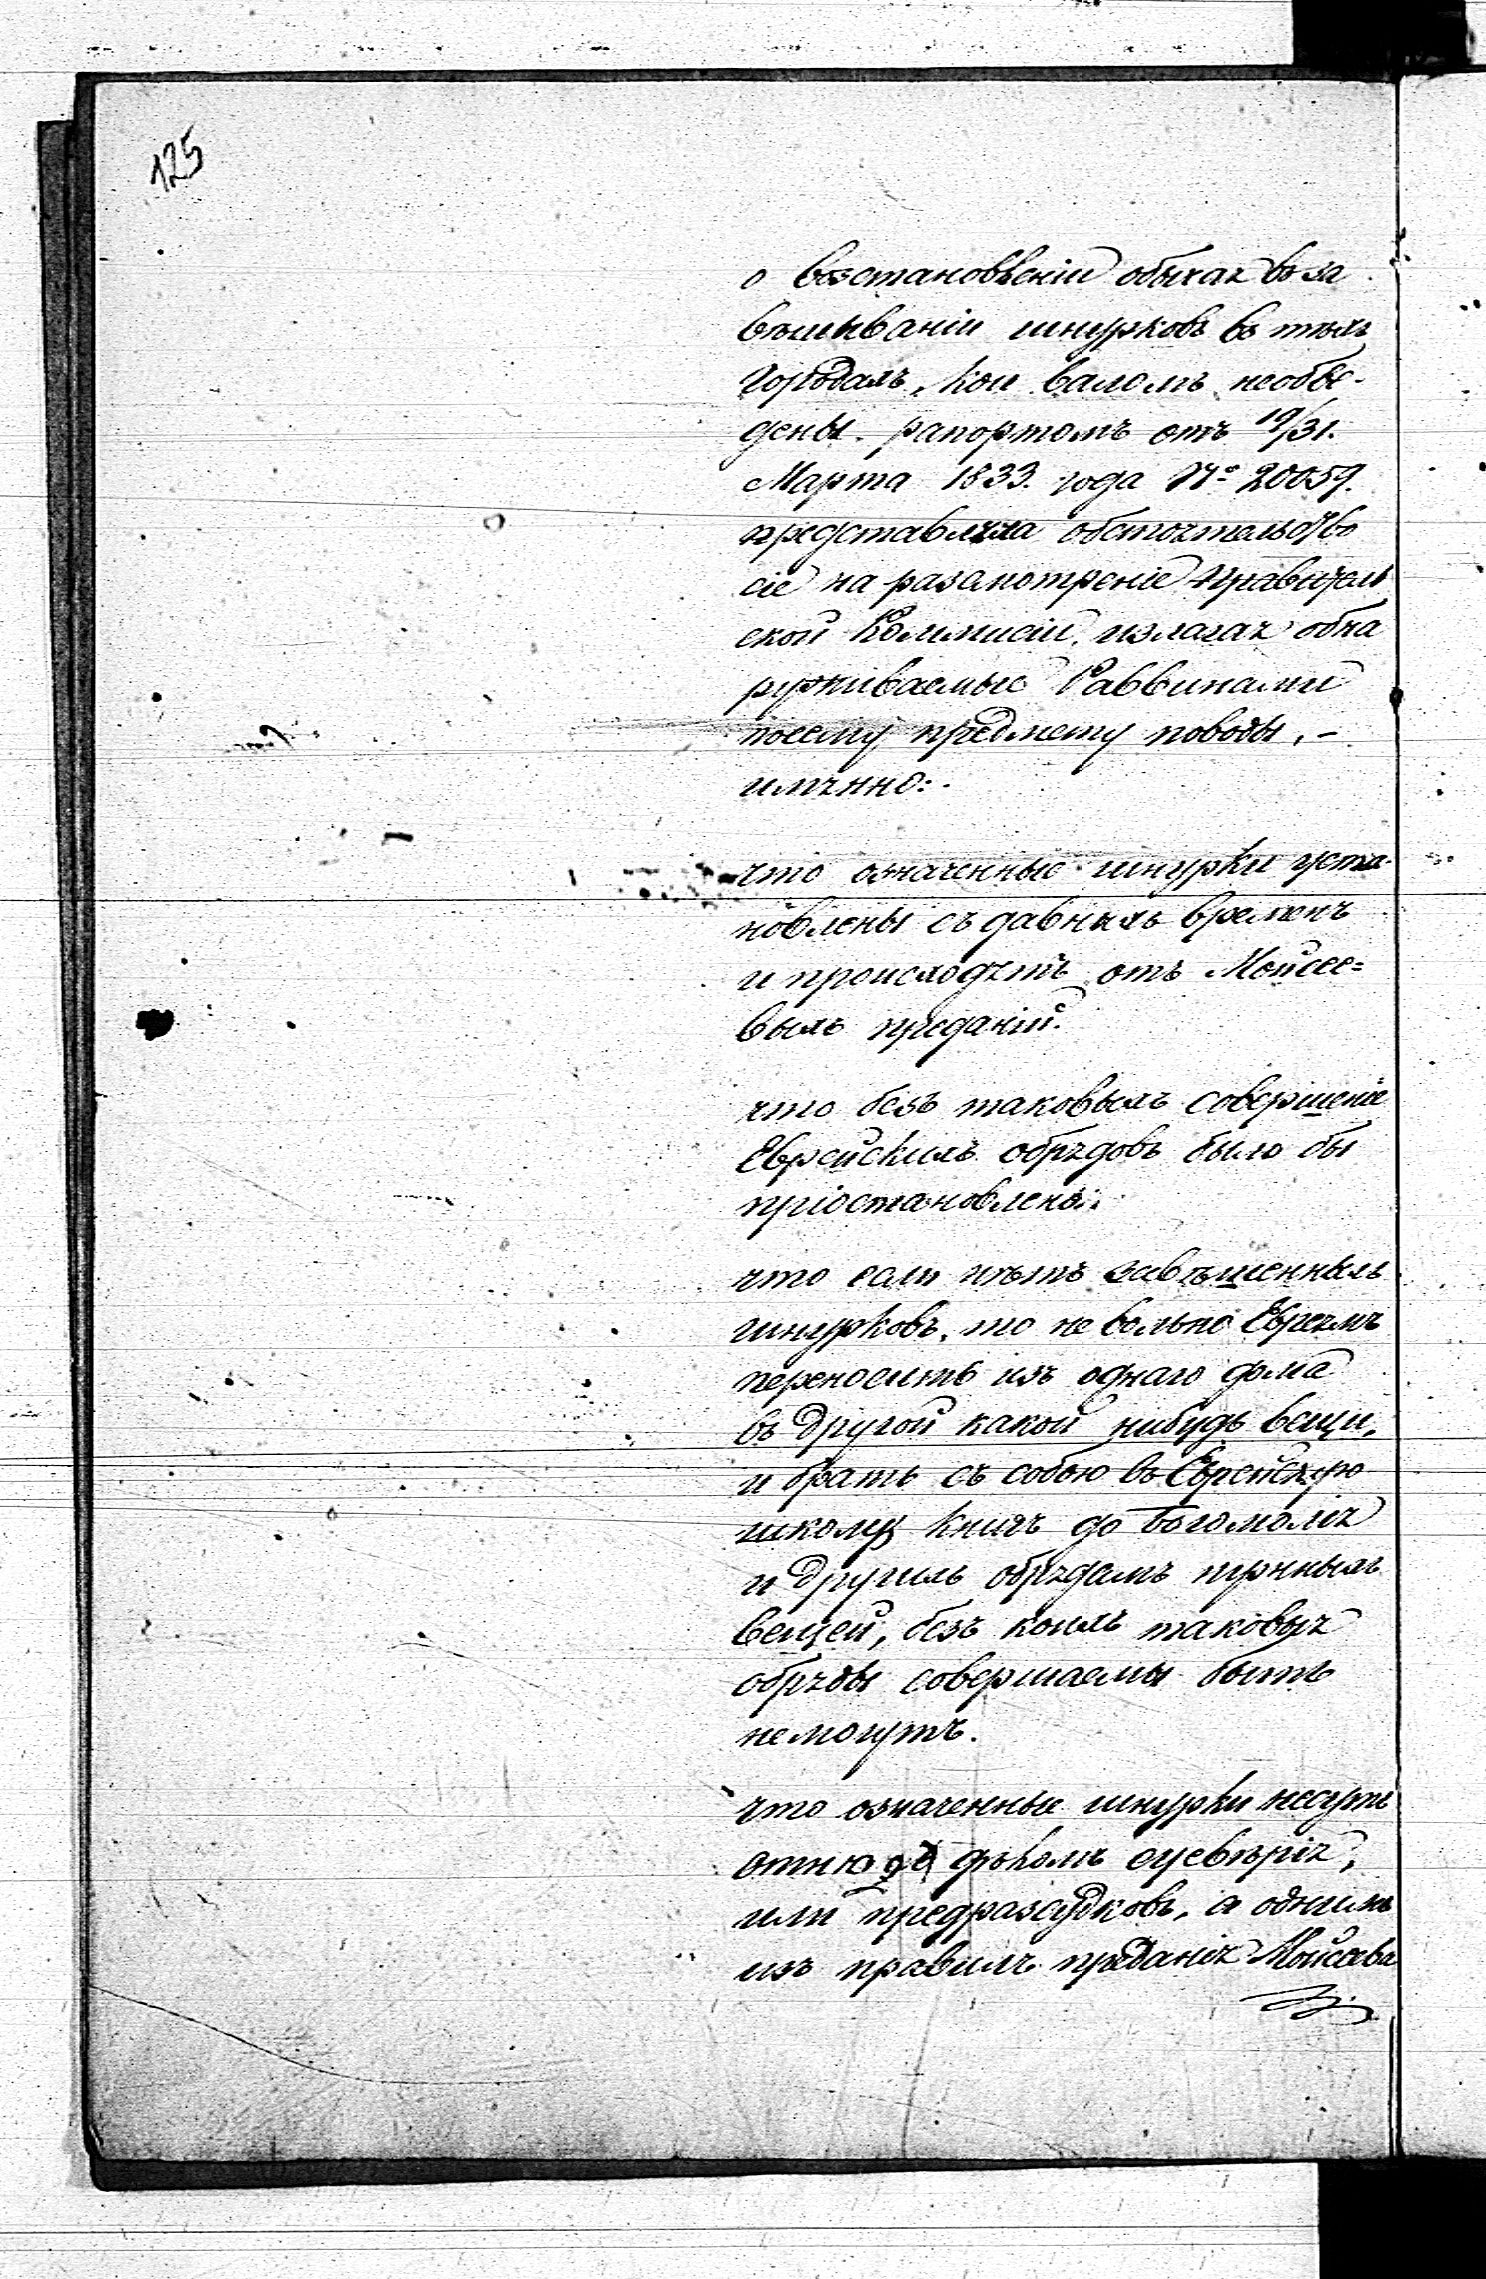 125
о возстановленіи обычая въ за
вѣшиваніи шнурковъ въ тѣхъ
городахъ, кои валомъ необве-
дены. рапортомъ отъ 19/31.
Марта 1833. года № 20059.
представляла обстоятельство
сіе на разсмотреніе Правитель
ской Коммисіи, излагая обна
руживаемые Раввинами
посему предмету поводы, -
имянно:
что означенные шнурки уста-
новлены съ давныхъ временъ
и происходятъ отъ Мойсее=
выхъ преданій.
что безъ таковыхъ совершеніе
Еврейскихъ обрядовъ было бы
пріостановлены.
что если нѣтъ завѣшенныхъ
шнурковъ, то не вольно Евреямъ
переносить изъ однаго дома
въ другой какой нибудь вещи,
и брать съ собою въ Еврейскую
школу книгъ до богомолія
и другихъ обрядамъ нужныхъ
вещей, безъ коихъ таковыя
обряды совершаемы быть
немогутъ.
что означенные шнурки несуть
отнюдѣ суевѣрія,
или предразсудковъ, а однимъ
изъ правилъ преданія Мойсева